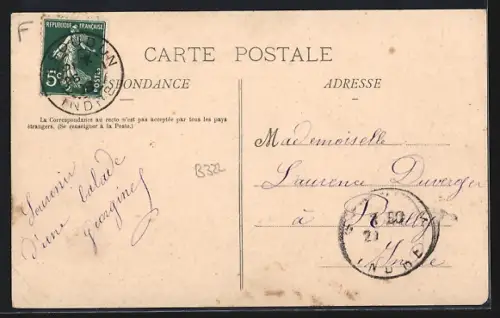 F
REPUBLIQUE FRANÇAISE
5c POSTES
INDRE
CARTE POSTALE
RESPONDANCE
ADRESSE
La Correspondance au recto n'est pas acceptée par tous les pays
étrangers, (Se renseigner à la Poste.)
Souvenir
d'une balade
B322
Mademoiselle
Laurence Duverger
à Reuilly
Indre
INDRE